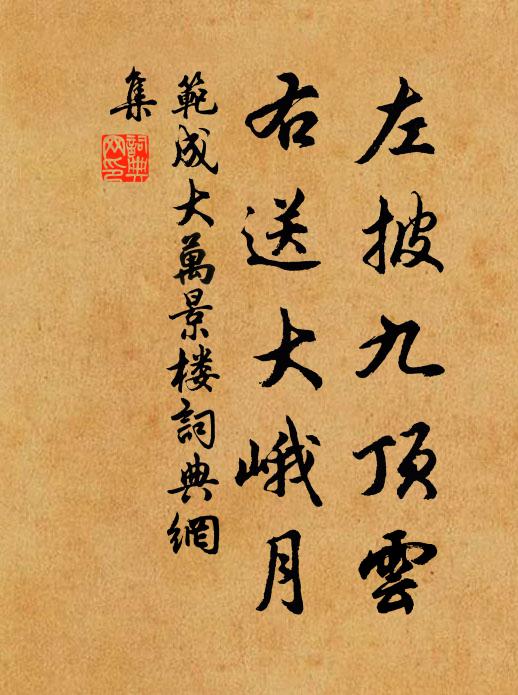 左披九頂雲
右送大峨月
範成大萬景楼詞典網
集
詞典网印